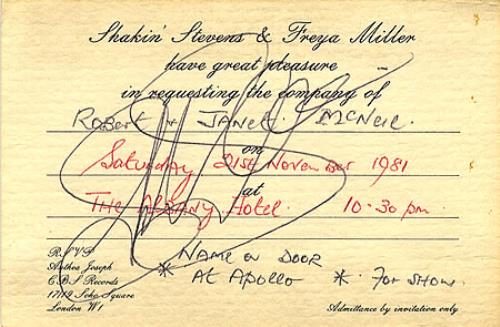 Shakin' Stevens & Freya Miller
have great pleasure
in requesting the company of
Robert & Janet McNeil.
on
Saturday 21st November 1981
at
The Albany Hotel. 10-30 pm
R.S.V.P
Anthea Joseph
CBS Records
17/19 Soho Square
London W1
* Name on Door
At Apollo * For Show.
Admittance by invitation only